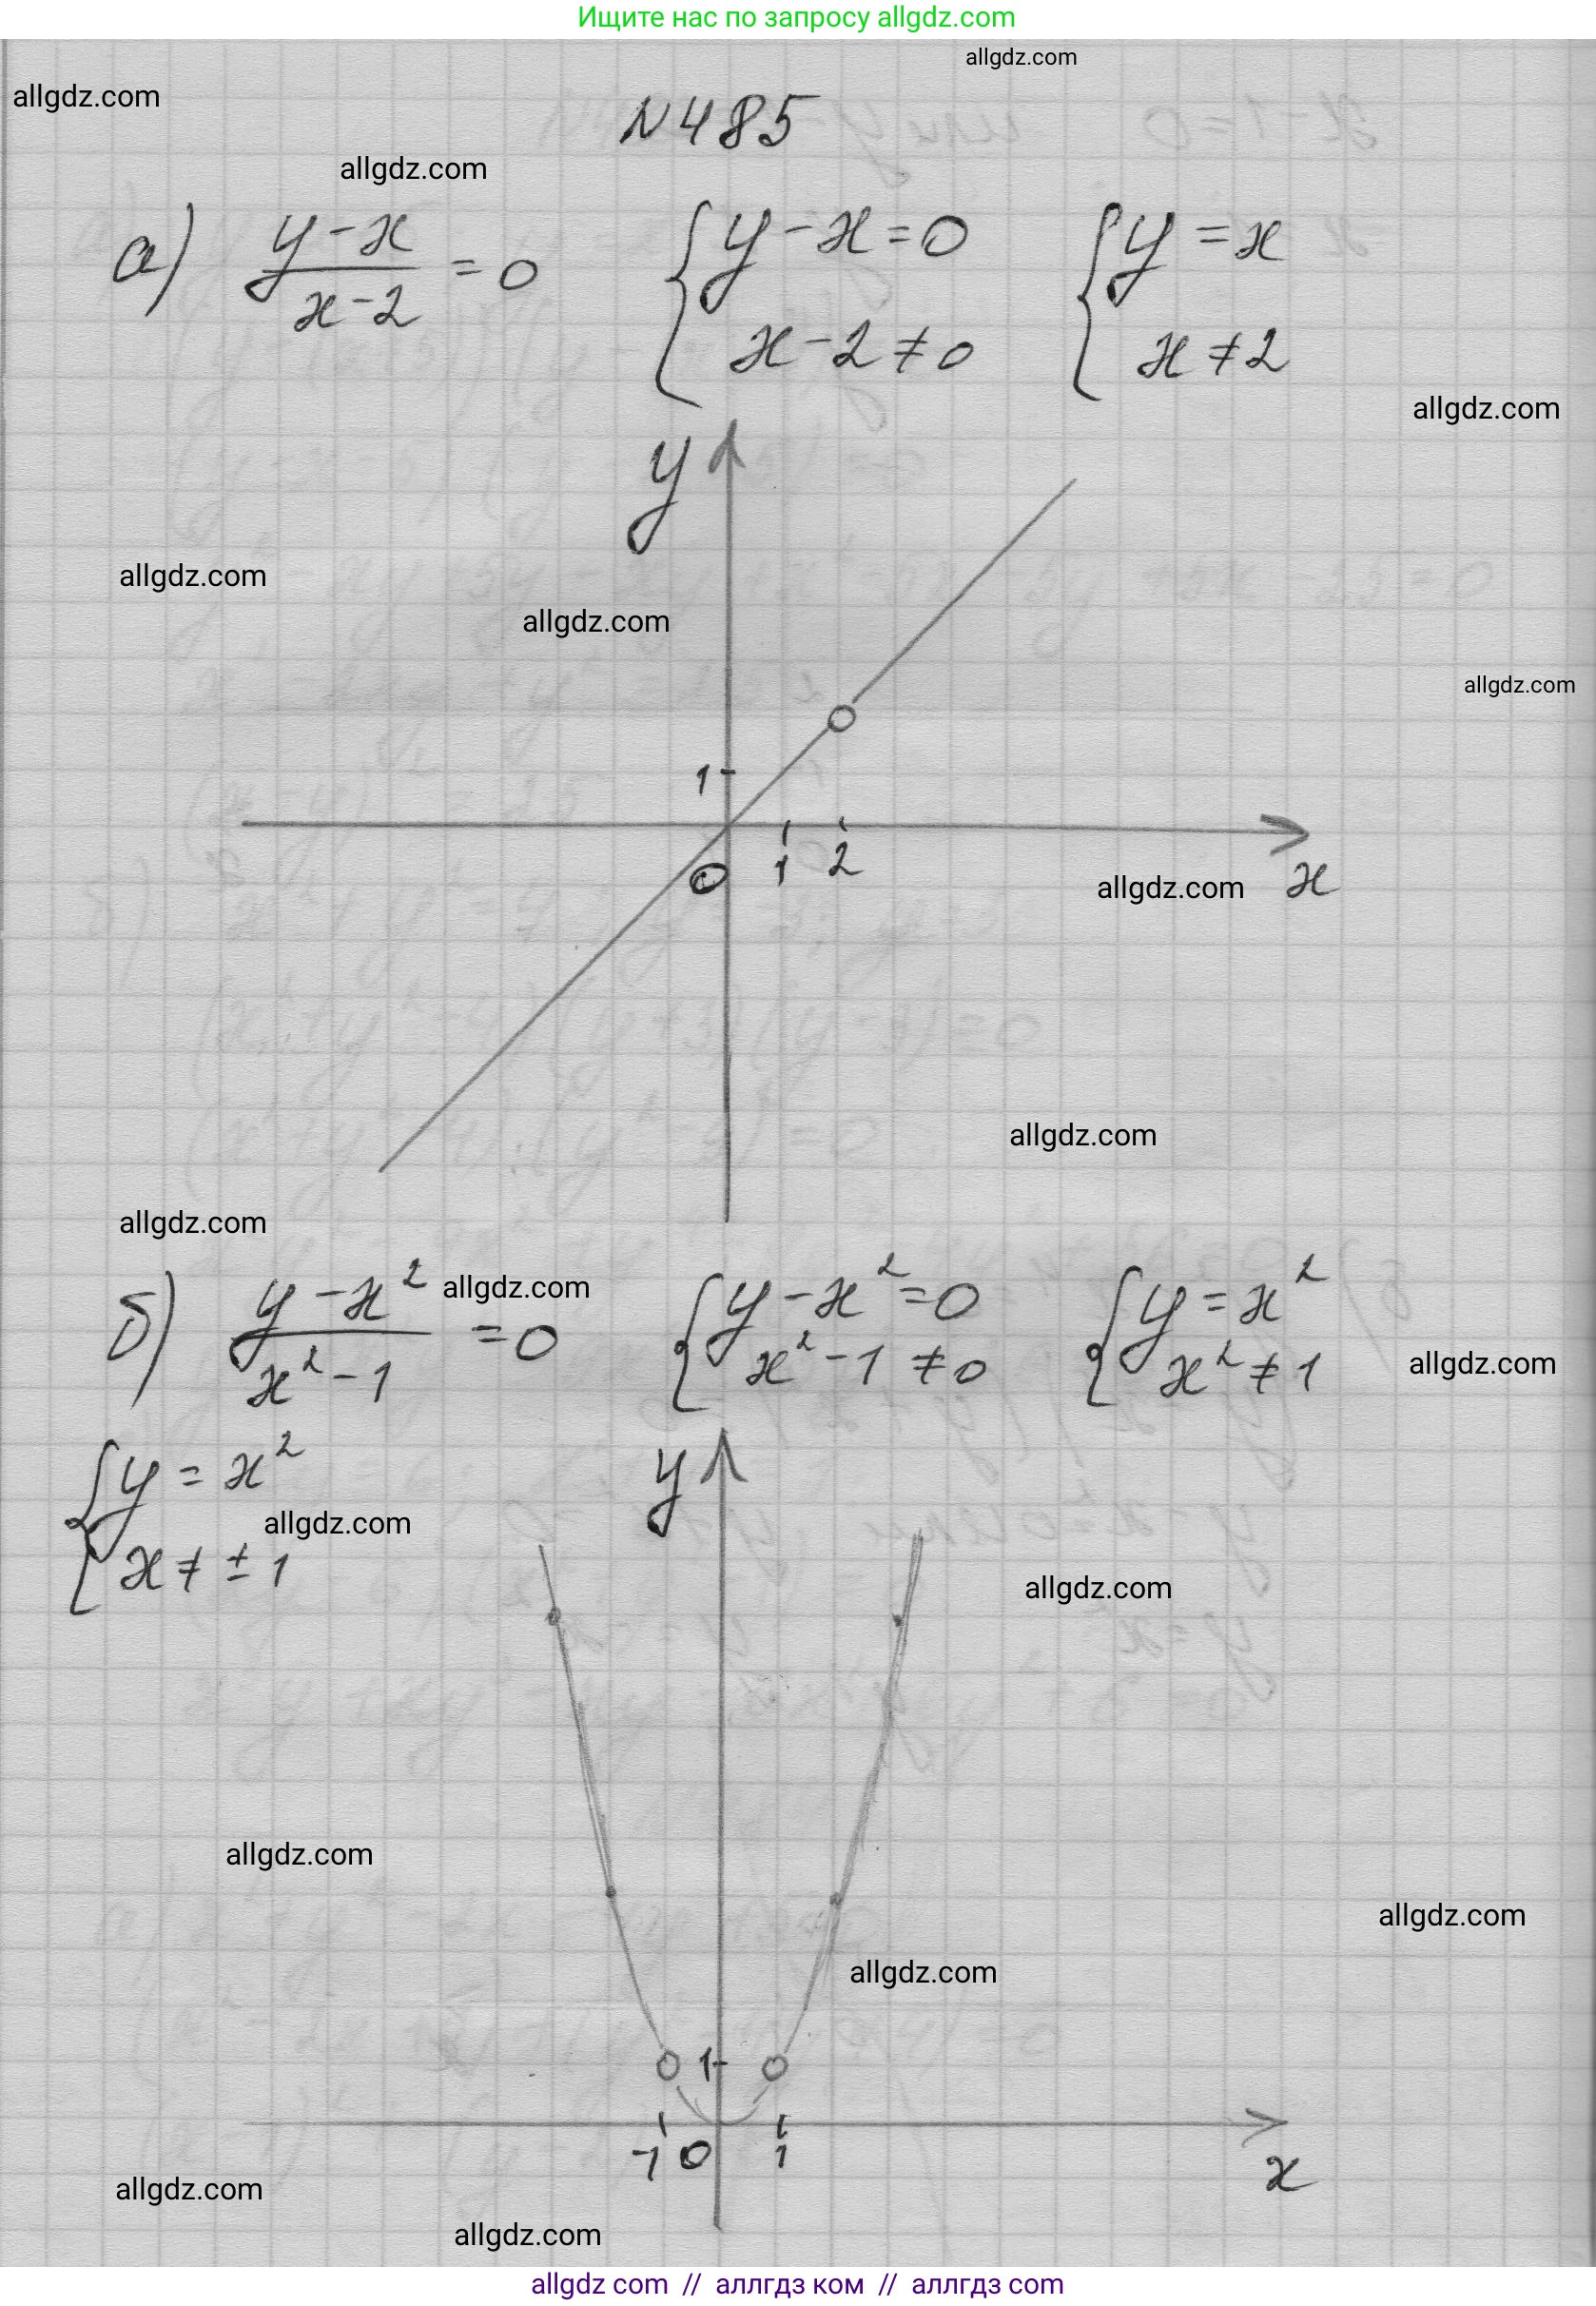 Ищите нас по запросу allgdz.com
allgdz.com
allgdz.com
№485
allgdz.com
а) (y-x)/(x-2) = 0 { y-x=0 x-2≠0 { y=x x≠2
allgdz.com
y
allgdz.com
allgdz.com
allgdz.com
1
0 1 2 x
allgdz.com
allgdz.com
allgdz.com
б) (y-x²)/(x²-1) = 0 { y-x²=0 x²-1≠0 { y=x² x²≠1
allgdz.com
allgdz.com
{ y=x² x≠±1
y
allgdz.com
allgdz.com
allgdz.com
allgdz.com
allgdz.com
1
-1 0 1 x
allgdz.com
allgdz.com
allgdz com // аллгдз ком // аллгдз com